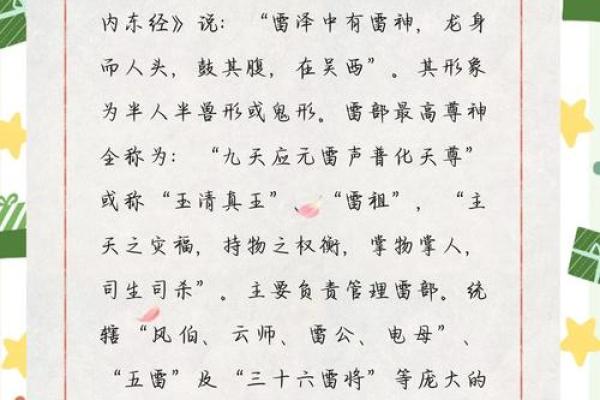 内东经》说：“雷泽中有雷神，龙身
而人头，鼓其腹，在吴西”。其形象
为半人半兽形或鬼形。雷部最高尊神
全称为：“九天应元雷声普化天尊”
或称“玉清真王”、“雷祖”，“主
天之灾福，持物之权衡，掌物掌人，
司生司杀”。主要负责管理雷部。统
辖“风伯、云师、雷公、电母”、
“五雷”及“三十六雷将”等庞大的